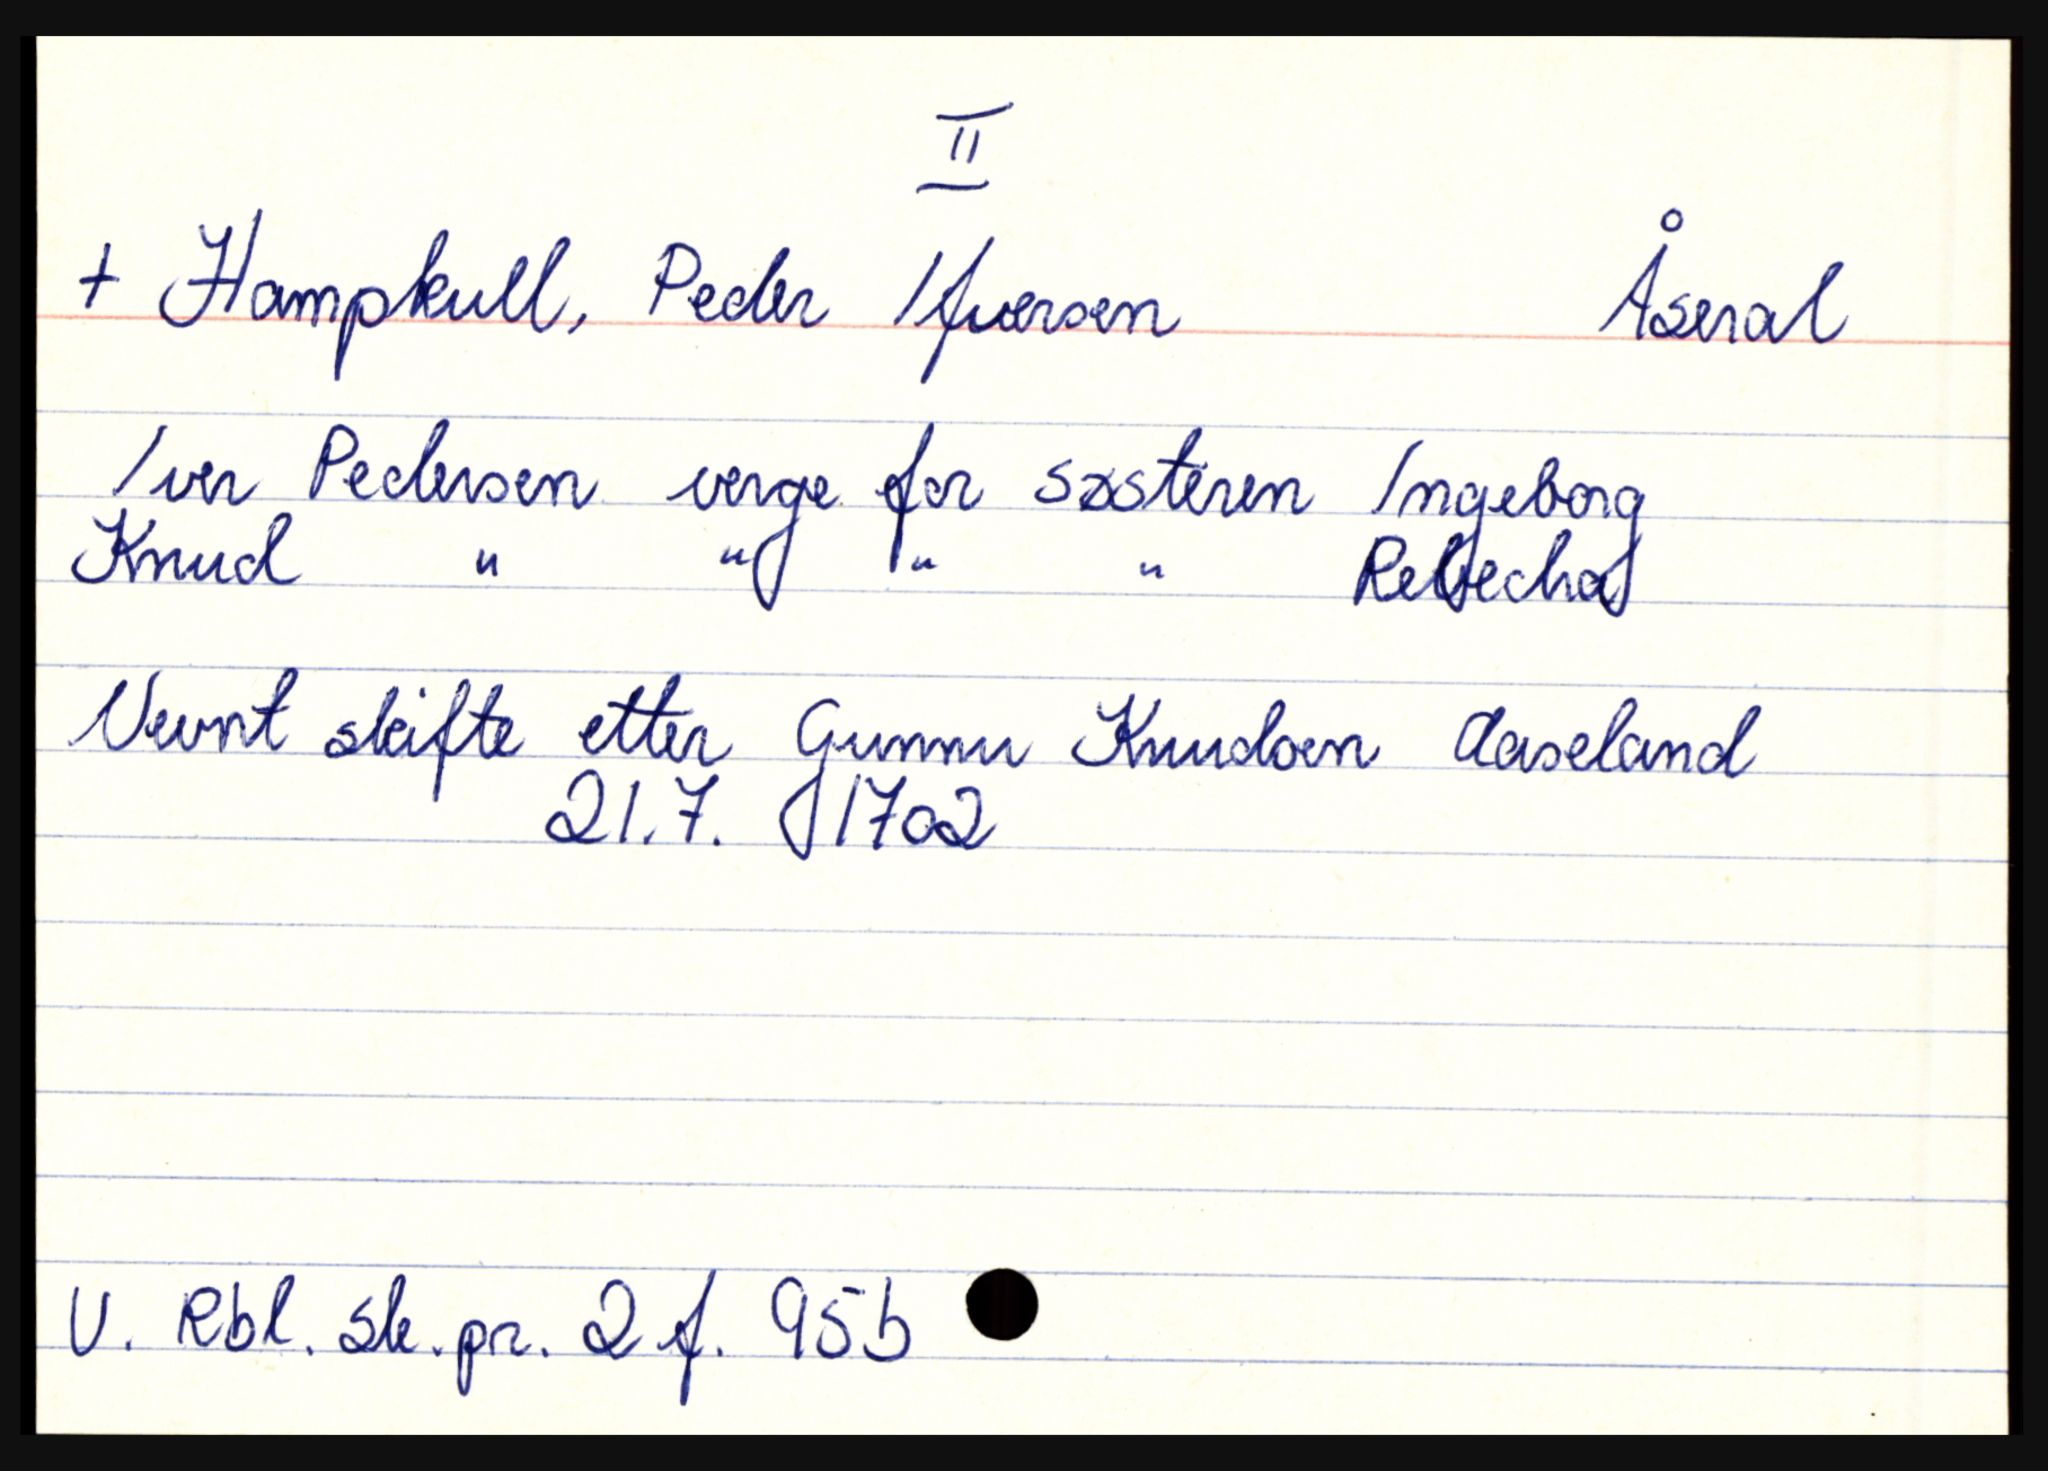 II
+ Hampkull, Peder Ifversen Åseral
Iver Pedersen verge for søsteren Ingeborg
Knud " " " " Rebecha
Nevnt skifte etter Gunnu Knudsen Aaseland
21.7. 1702
V. Rbl. sk. pr. 2 f. 95b